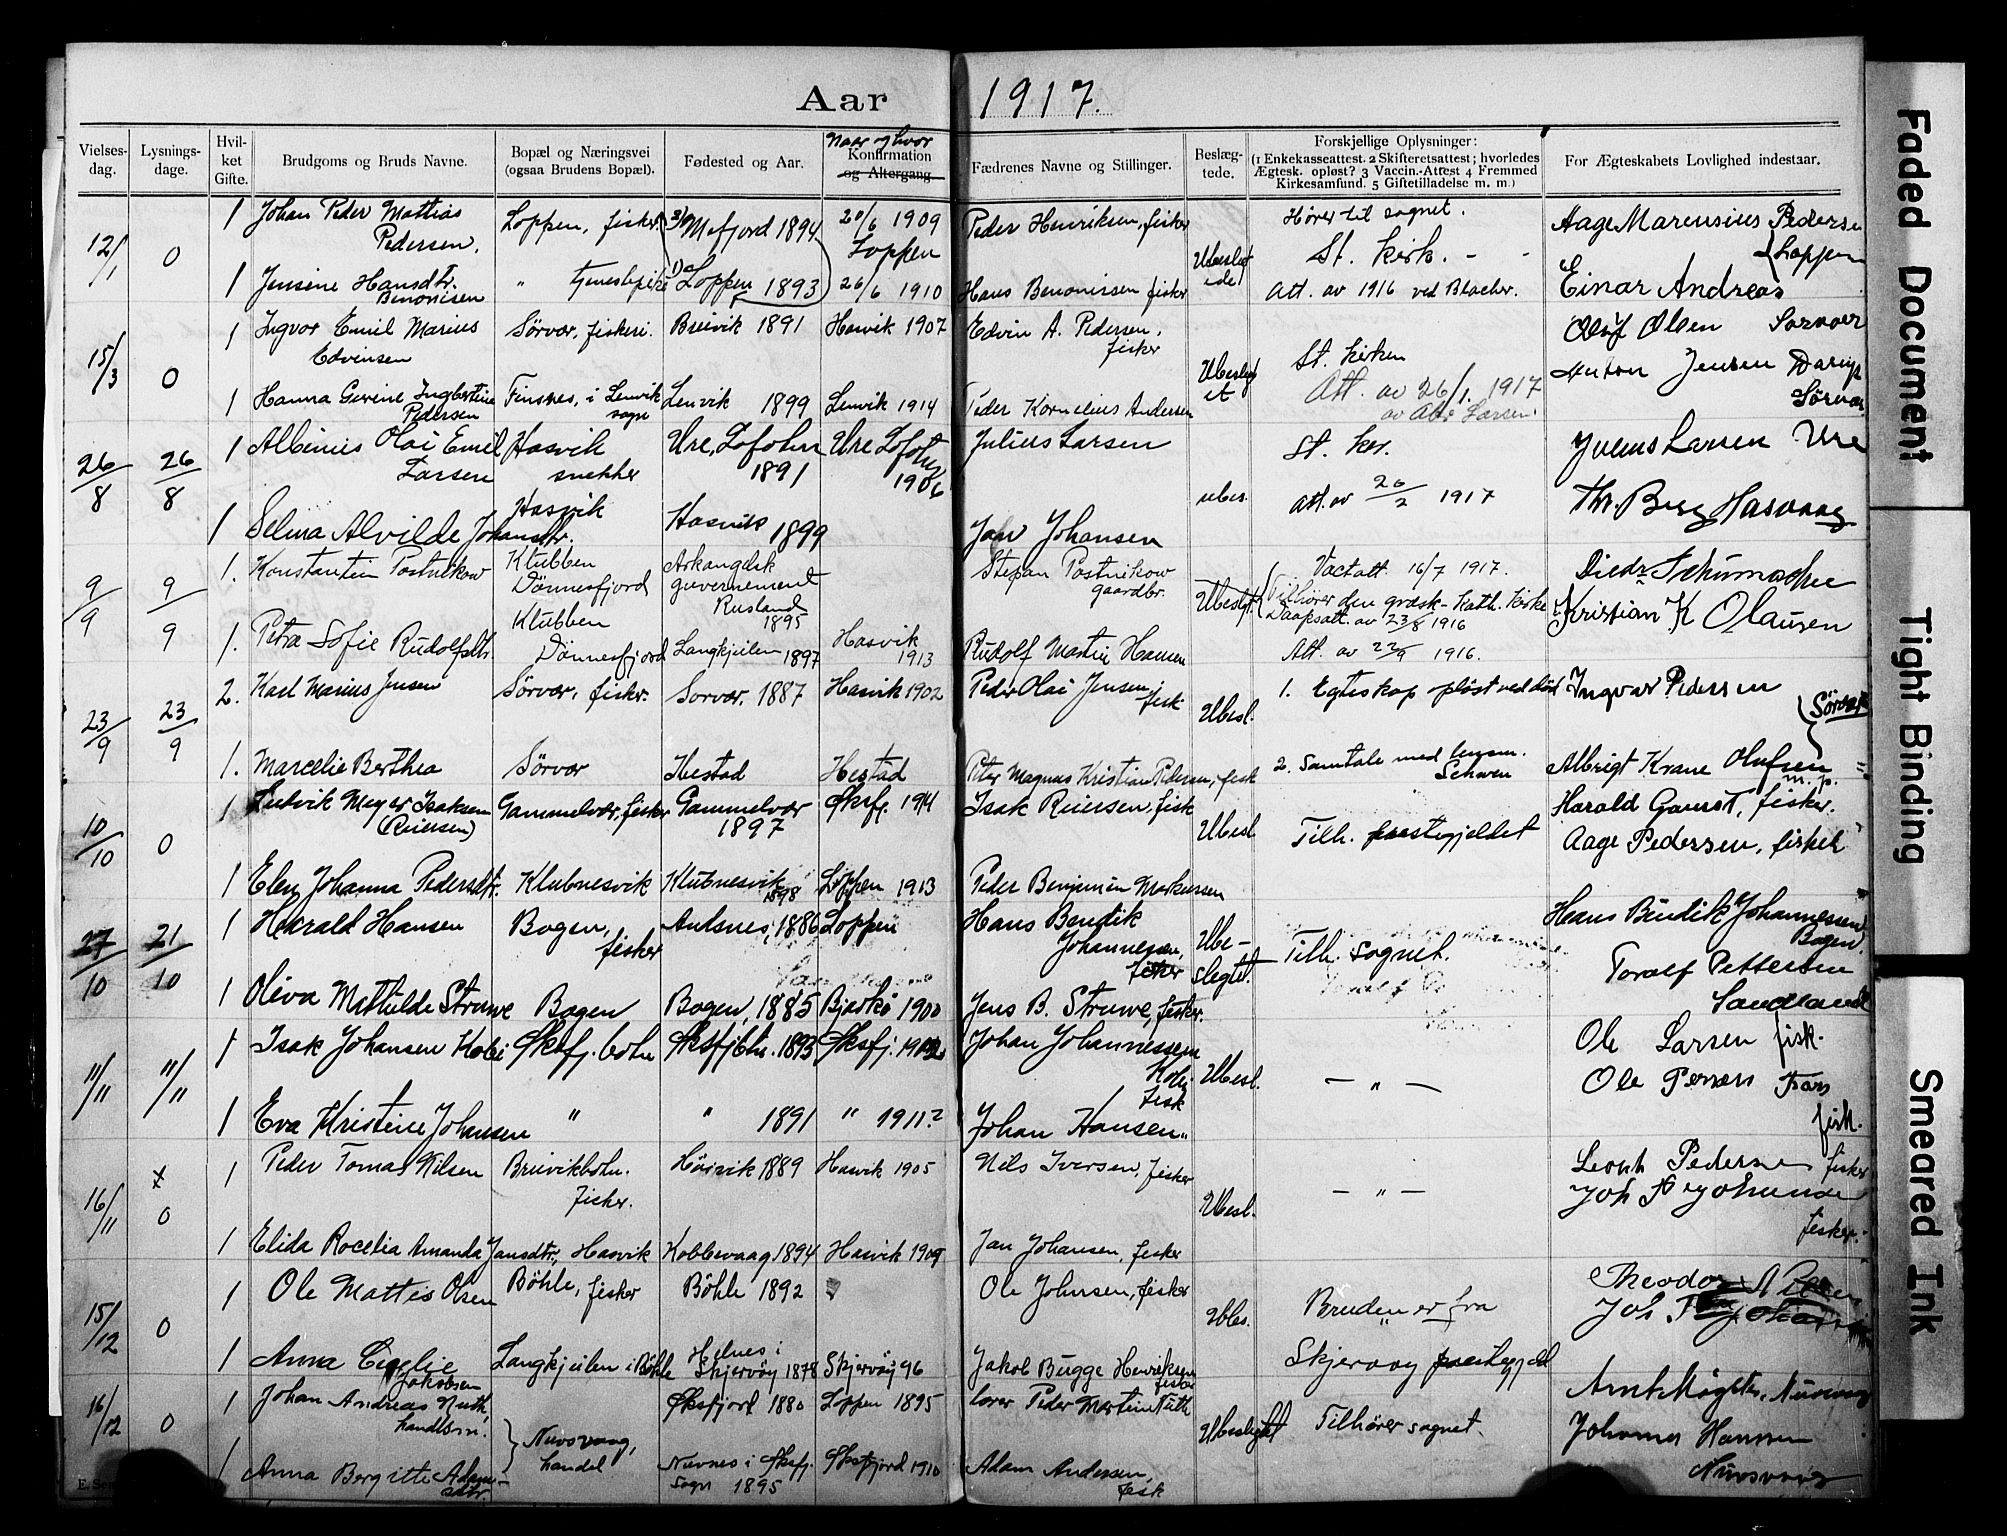 Aar 1917.
Vielses-dag.
Lysnings-dage.
Hvil-ket Gifte.
Brudgoms og Bruds Navne.
Bopæl og Næringsvei
(ogsaa Brudens Bopæl).
Fødested og Aar.
Naar og hvor
Konfirmation
og Altergang
Fædrenes Navne og Stillinger.
Beslæg-tede.
Forskjellige Oplysninger:
(1 Enkekasseattest. 2 Skifteretsattest; hvorledes
Ægtesk. opløst? 3 Vaccin.-Attest 4 Fremmed
Kirkesamfund. 5 Giftetilladelse m. m.)
For Ægteskabets Lovlighed indestaar.
12/1 0 1 Johan Peder Mattias Loppen, fisker Mefjord 1894 20/6 1909 Peder Henriksen, fisker Hører til sognet. Aage Marensius Pederse
Pedersen, Loppen Ubeslegt St. kirk. - - Loppen
1 Jensine Hansdtr. " tjenestepike Loppen 1893 26/6 1910 Hans Benonissen fisker ede Att. av 1916 ved Blocher. Einar Andreas
Benonisen
15/3 0 1 Ingvor Emil Marius Sørvær, fiskeri. Breivik 1891 Hasvik 1907 Edvin A. Pedersen, Oluf Olsen Sørvær
Edvinsen fisker Ubeslegt St. kirken Anton Jensen
1 Hanna Gerine Ingbertine Finsnes, i Lenvik Lenvik 1899 Lenvik 1914 Peder Kornelius Andersen et Att. av 26/1. 1917 Sørvær
Pedersen sogn av Larsen.
26/8 26/8 1 Albinus Olai Emil Hasvik Ure, Lofoten Ure Lofoten Julius Larsen St. kor. Julius Larsen Ure
Larsen snekker 1891 1906 ubes. Att. av 26/2 1917 Th. Berg Hasvaag
1 Selma Alvilde Johansdtr. Hasvik Hasvik 1899 Jan Johansen
9/9 9/9 1. Konstantin Postnikow Klubben Arkangelsk Stepan Postnikow Vacc.att. 16/7 1917. Diedr. Schumacher
Dönnesfjord guvernement gaardbr. Ubeslgt. Tilhører den græsk-kath. kirke Kristian K Olausen
Rusland 1895 Daapsatt. av 23/8 1916
1. Petra Sofie Rudolfsdtr. Klubben Dönnesfjord Langkjeilen 1897 Hasvik 1913 Rudolf Martin Hansen Att. av 22/9 1916.
23/9 23/9 2. Karl Marius Jensen Sörvær, fisker. Sorvær. 1887 Hasvik 1902 Peder Olai Jensen, fisk. Ubesl. 1. Egteskap opløst ved död Ingvar Pedersen
Sörvær
1. Marcelie Berthea Sörvær Hestad Hestad Peter Magnus Kristian Pedersen, fisk 2. Samtale med lensm. Schwen Albrigt Krane Olufsen
m. p.
10/10 0 1 Ludvik Meyer Isaksen Gammelvær, fisker Gammelvær Øksfj. 1914 Isak Riersen, fisk Ubesl. Tilh. prestegjeldet Harald Gamst, fisker.
(Riersen) 1897 Aage Pedersen, fisker
1 Elen Johanna Pedersdtr. Klubnesvik Klubnesvik 1898 Loppen 1913 Peder Benjamin Markussen
27/10 21/10 1 Harald Hansen Bogen, Andsnes, 1886 Loppen Hans Bendik Ube- Tilh. sognet. Hans Bendik Johannessen
fisker Johannesen, fisker slegtet. Bogen
Toralf Pettersen
1 Oliva Mathilde Struwe Bogen Bogen, 1885 Bjarkö 1900 Jens B. Struwe, fisker. Sandland
11/11 11/11 1 Isak Johansen Koli Øksfj. botn Øksfjbtn. 1893 Øksfj. Johan Johannessen Ubesl. - " - Ole Larsen fisk.
Koli, fisk Ole
1 Eva Kristine Johansen " " 1891 " 1911? Johan Hansen " fisk.
16/11 0 1 Peder Tomas Nilsen Breivikbotn. Höivik 1889 Hasvik 1905 Nils Iversen, fisker Ubesl. - " - Pedersen fisker
fisker. Joh
fisker.
1 Elida Rocelia Amanda Jansdtr., Hasvik Kobbevaag 1894 Hasvik 1909 Jan Johansen, fisker
15/12 0 1 Ole Mattis Olsen Böhle, fisker Böhle 1892 Ole Johnsen, fisker Ubes. Bruden er fra Theodor
Joh
1 Anna Cecelie Langkjeilen i Böhle Helnes i Skjervöy 1878 Skjervöy 96 Jakob Bugge Henriksen Skjervøy prestegjeld
Jakobsen fisker
16/12 0 1 Johan Andreas Øksfjord 1880 Loppen 1895 lærer Peder Martin Ubeslegtet Tilhører sognet.
Nuvsvaag, handel Johannes Hansen
1 Anna Bergitte Adams- Nuvnes i Øksfj. Øksfjord 1910 Adam Andersen, Nuvsvaag
datr. sogn 1895 fisk
Faded Document
Tight Binding
Smeared Ink